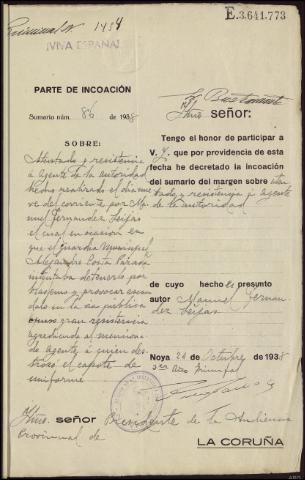 E.3.641.773
Criminal Nº 1454
¡VIVA ESPAÑA!
PARTE DE INCOACIÓN
Sumario núm. 86 de 1938
SOBRE:
Atentado y resistencia
a Agente de la autoridad
hecho realizado el día nue
ve del corriente por Ma
nuel Fernandez Seijas
el cual en ocasión en
que el Guardia Municipal
Alejandro Costa
intentaba detenerlo por
blasfemo y provocar escan
dalo en la via pública
opuso gran resistencia
agrediendo al menciona
do Agente, a quien des
trozó el capote de
uniforme
Iltmo. señor:
Tengo el honor de participar a
V. I. que por providencia de esta
fecha he decretado la incoación
del sumario del margen sobre aten
tado y resistencia a Agente
de la autoridad
de cuyo hecho es presunto
autor Manuel Fernan
dez Seijas
Noya 24 de Octubre de 1938
3er Año Triunfal
Iltmo. señor Presidente de la Audiencia
Provincial de
LA CORUÑA